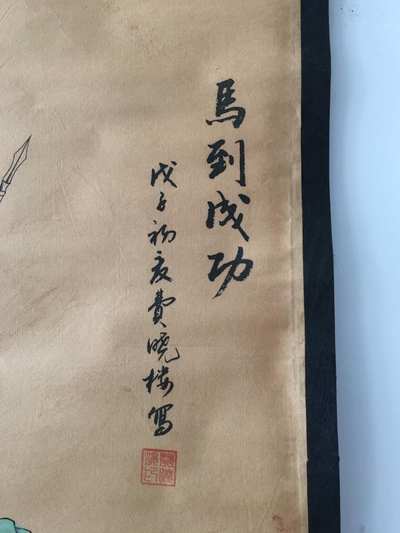 馬到成功
戊子初夏費曉樓寫